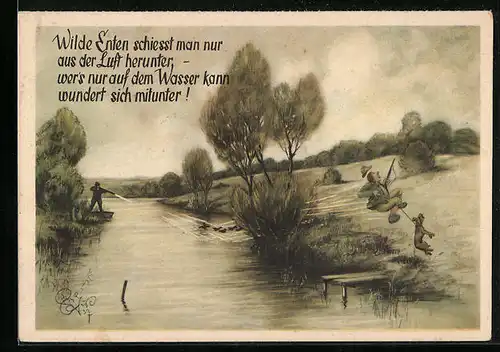 Wilde Enten schiesst man nur
aus der Luft herunter, -
wer's nur auf dem Wasser kann
wundert sich mitunter!